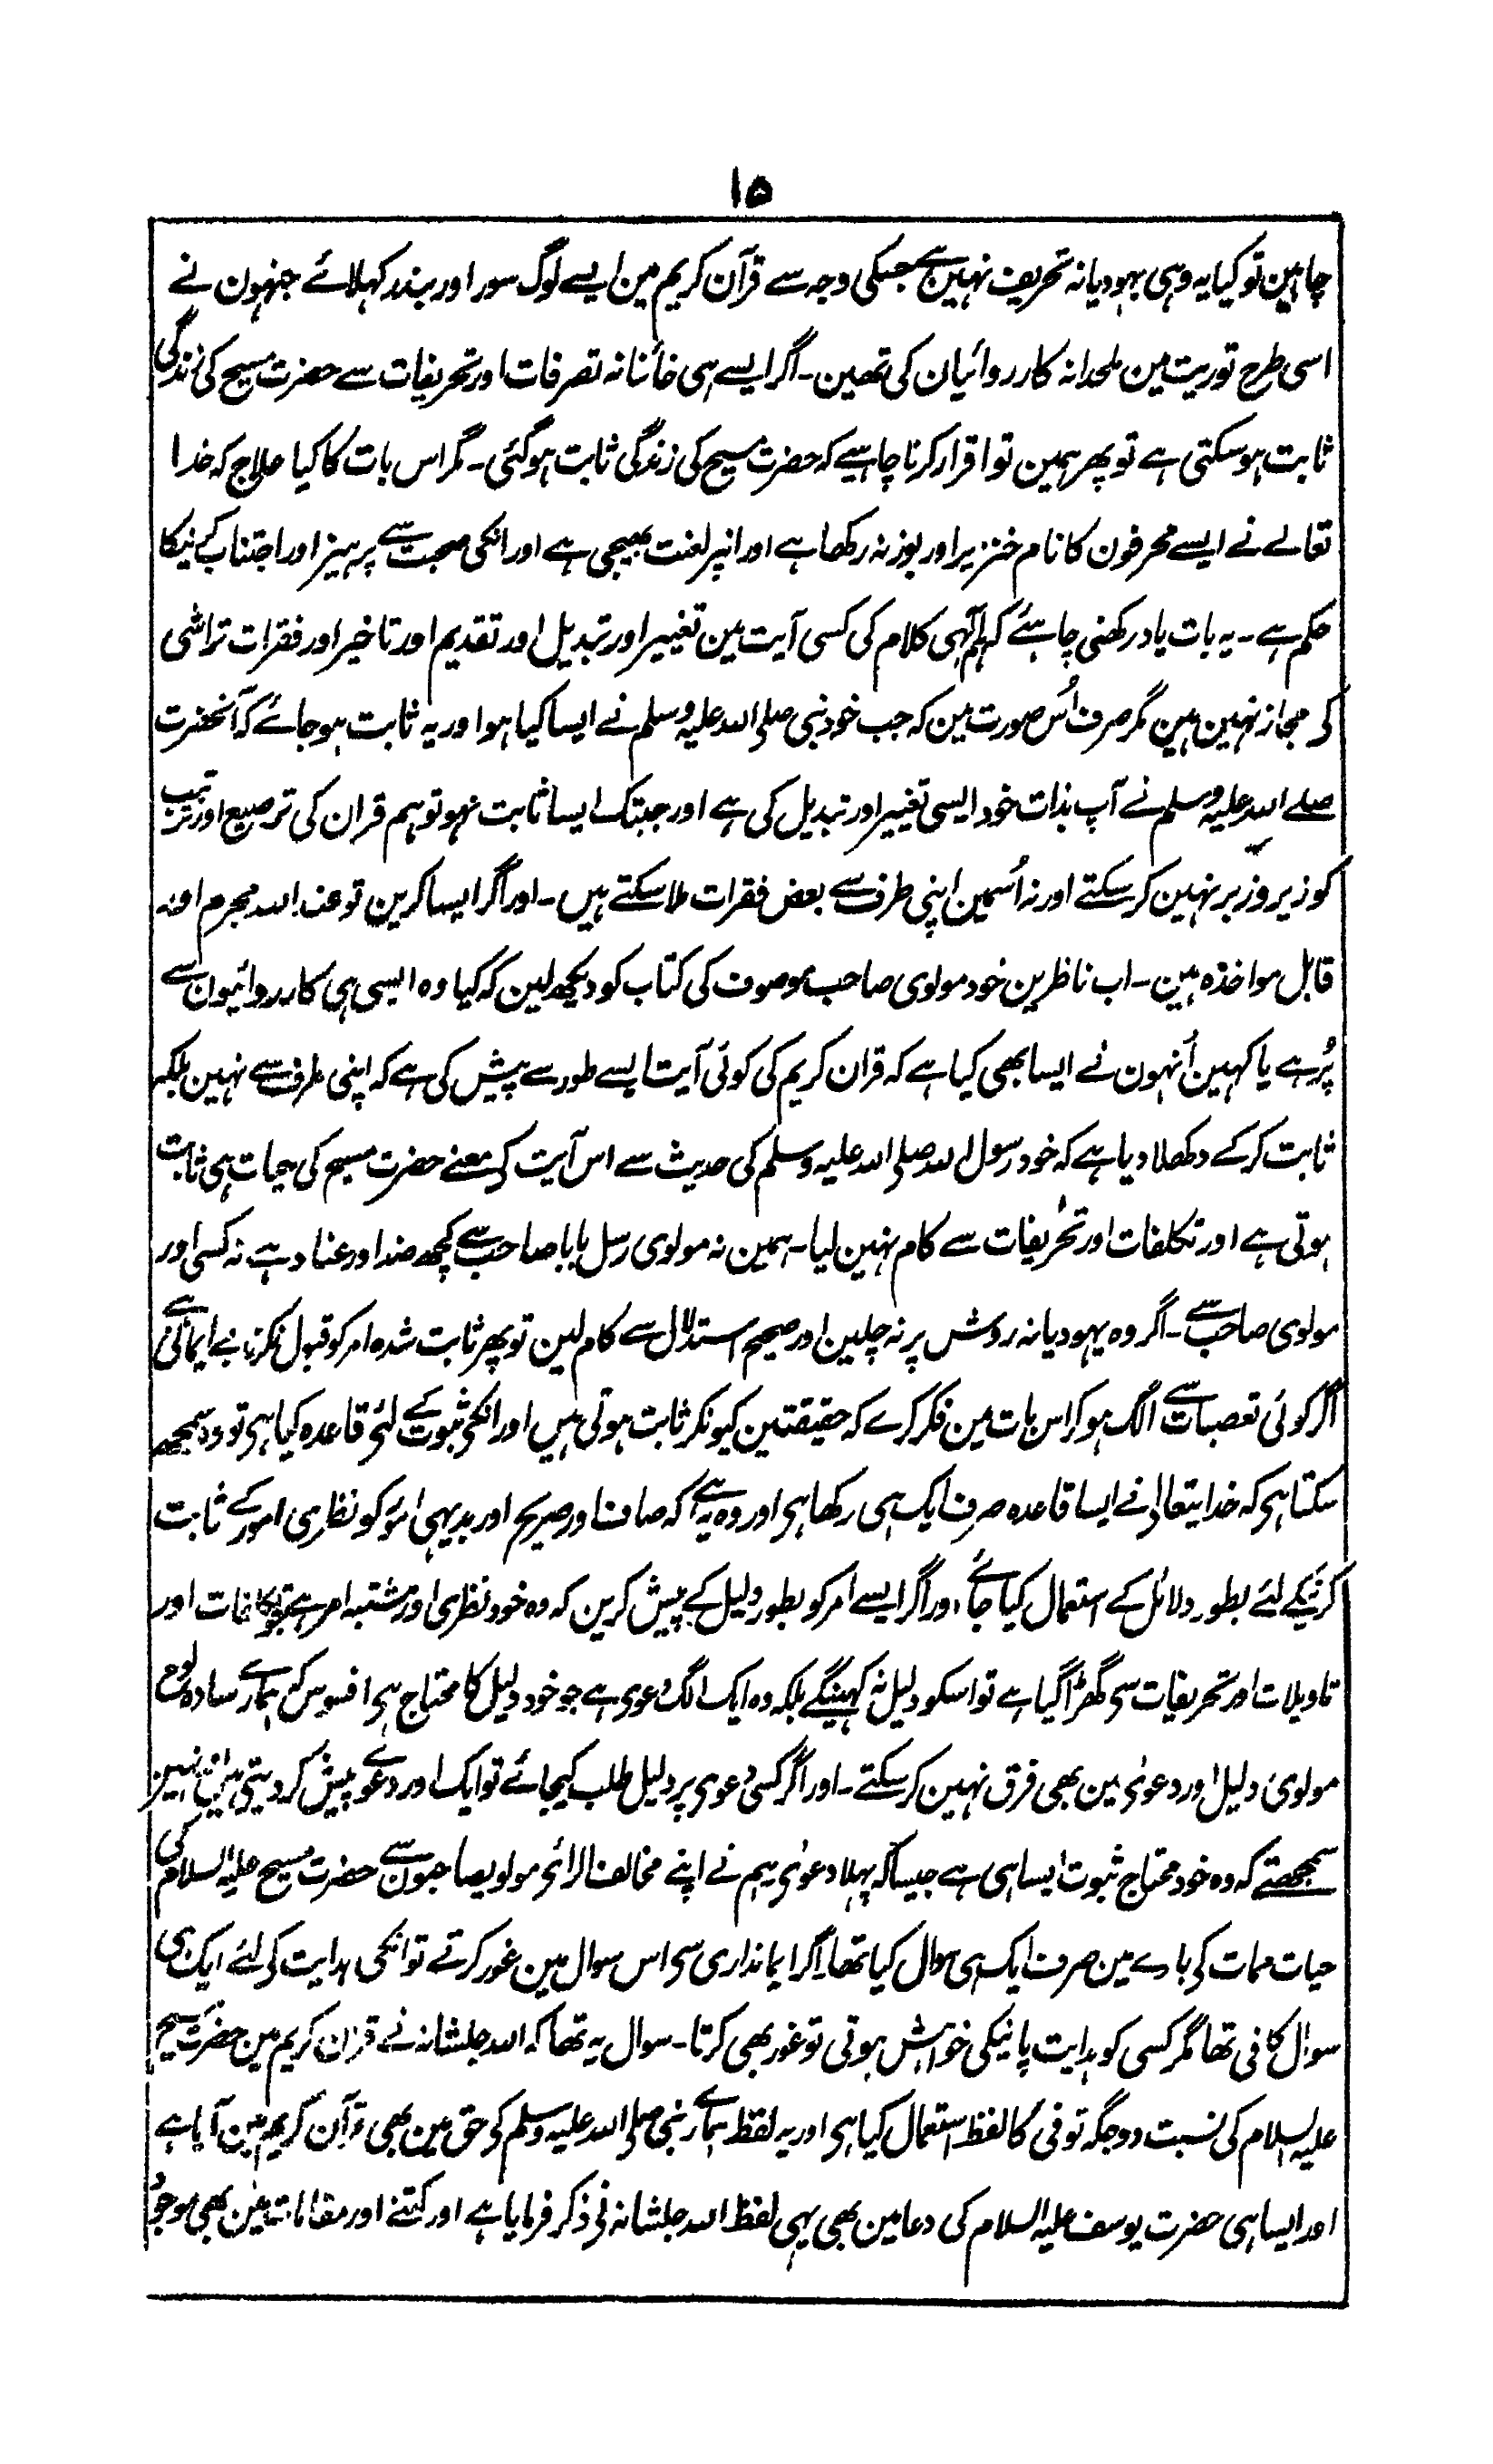 ۱۵
چاہین تو کیا یہ وہی یہودیانہ تحریف نہین ہے جسکی وجہ سے قرآن کریم مین ایسے لوگ سور اور بندر کہلائے جنہون نے
اسی طرح توریت مین ملحدانہ کارروائیان کی تھین۔ اگر ایسے ہی خائنانہ تصرفات اور تحریفات سے حضرت مسیح کی زندگی
ثابت ہو سکتی ہے تو پھر ہمین تو اقرار کرنا چاہیے کہ حضرت مسیح کی زندگی ثابت ہو گئی۔ مگر اس بات کا کیا علاج کہ خدا
تعالے نے ایسے محرفون کا نام خنزیر اور بوزنہ رکھا ہے اور انپر لعنت بھیجی ہے اور انکی صحبت سے پرہیز اور اجتناب کرنیکا
حکم ہے۔ یہ بات یاد رکھنی چاہئے کہ ہم الٰہی کلام کی کسی آیت مین تغییر اور تبدیل اور تقدیم اور تاخیر اور فقرات تراشی
کے مجاز نہین ہین مگر صرف اُس صورت مین کہ جب خود نبی صلی اللہ علیہ وسلم نے ایسا کیا ہو اور یہ ثابت ہو جائے کہ آنحضرت
صلے اللہ علیہ وسلم نے آپ بذات خود ایسی تغییر اور تبدیل کی ہے اور جبتک ایسا ثابت نہو تو ہم قران کی ترصیع اور ترتیب
کو زیر و زبر نہین کر سکتے اور نہ اُسمین اپنی طرف سے بعض فقرات ملا سکتے ہیں۔ اور اگر ایسا کرین تو عند اللہ مجرم اور
قابل مواخذہ ہین۔ اب ناظرین خود مولوی صاحب موصوف کی کتاب کو دیکھ لین کہ کیا وہ ایسی ہی کارروائیون سے
پُر ہے یا کہین اُنہون نے ایسا بھی کیا ہے کہ قران کریم کی کوئی آیت ایسے طور سے پیش کی ہے کہ اپنی طرف سے نہین بلکہ
ثابت کر کے دکھلا دیا ہے کہ خود رسول اللہ صلی اللہ علیہ وسلم کی حدیث سے اس آیت کے معنے حضرت مسیح کی حیات ہی ثابت
ہوتی ہے اور تکلفات اور تحریفات سے کام نہین لیا۔ ہمین نہ مولوی رسل بابا صاحب سے کچھ ضد اور عناد ہے نہ کسی اور
مولوی صاحب سے۔ اگر وہ یہودیانہ روش پر نہ چلین اور صحیح استدلال سے کام لین تو پھر ثابت شدہ امر کو قبول نکرنا بے ایمانی ہے
اگر کوئی تعصبات سے الگ ہو کر اس بات مین فکر کرے کہ حقیقتین کیونکر ثابت ہوتی ہیں اور انکی ثبوت کے لئے قاعدہ کیا ہی تو وہ سمجھ
سکتا ہی کہ خدا یتعالیٰ نے ایسا قاعدہ صرف ایک ہی رکھا ہی اور وہ یہ ہے کہ صاف اور صریح اور بدیہی امور کو نظری امور کے ثابت
کرنیکے لئے بطور دلائل کے استعمال کیا جائے اور اگر ایسے امر کو بطور دلیل کے پیش کرین کہ وہ خود نظری اور مشتبہ امر ہے جو تکلفات اور
تاویلات اور تحریفات سی گھڑا گیا ہے تو اسکو دلیل نہ کہینگے بلکہ وہ ایک الگ دعوی ہے جو خود دلیل کا محتاج ہی افسوس کہ ہمارے سادہ لوح
مولوی دلیل اور دعویٰ مین بھی فرق نہین کر سکتے۔ اور اگر کسی دعوی پر دلیل طلب کیجائے تو ایک اور دعوے پیش کر دیتی ہین اور نہین
سمجھتے کہ وہ خود محتاج ثبوت ایسا ہی ہے جیسا کہ پہلا دعویٰ ہم نے اپنے مخالف الرائے مولویصاحبون سے حضرت مسیح علیہ السلام کی
حیات ممات کی بارے مین صرف ایک ہی سوال کیا تھا اگر ایمانداری سی اس سوال مین غور کرتے تو انکی ہدایت کے لئے ایک ہی
سوال کافی تھا مگر کسی کو ہدایت پانیکی خواہش ہوتی تو غور بھی کرتا۔ سوال یہ تھا کہ اللہ جلشانہ نے قرآن کریم مین حضرت مسیح
علیہ السلام کی نسبت دو جگہ توفی کا لفظ استعمال کیا ہی اور یہ لفظ ہمارے نبی صلی اللہ علیہ وسلم کے حق مین بھی قرآن کریم مین آیا ہے
اور ایسا ہی حضرت یوسف علیہ السلام کی دعا مین بھی یہی لفظ اللہ جلشانہ نے ذکر فرمایا ہے اور کتنے اور مقامات مین بھی موجود